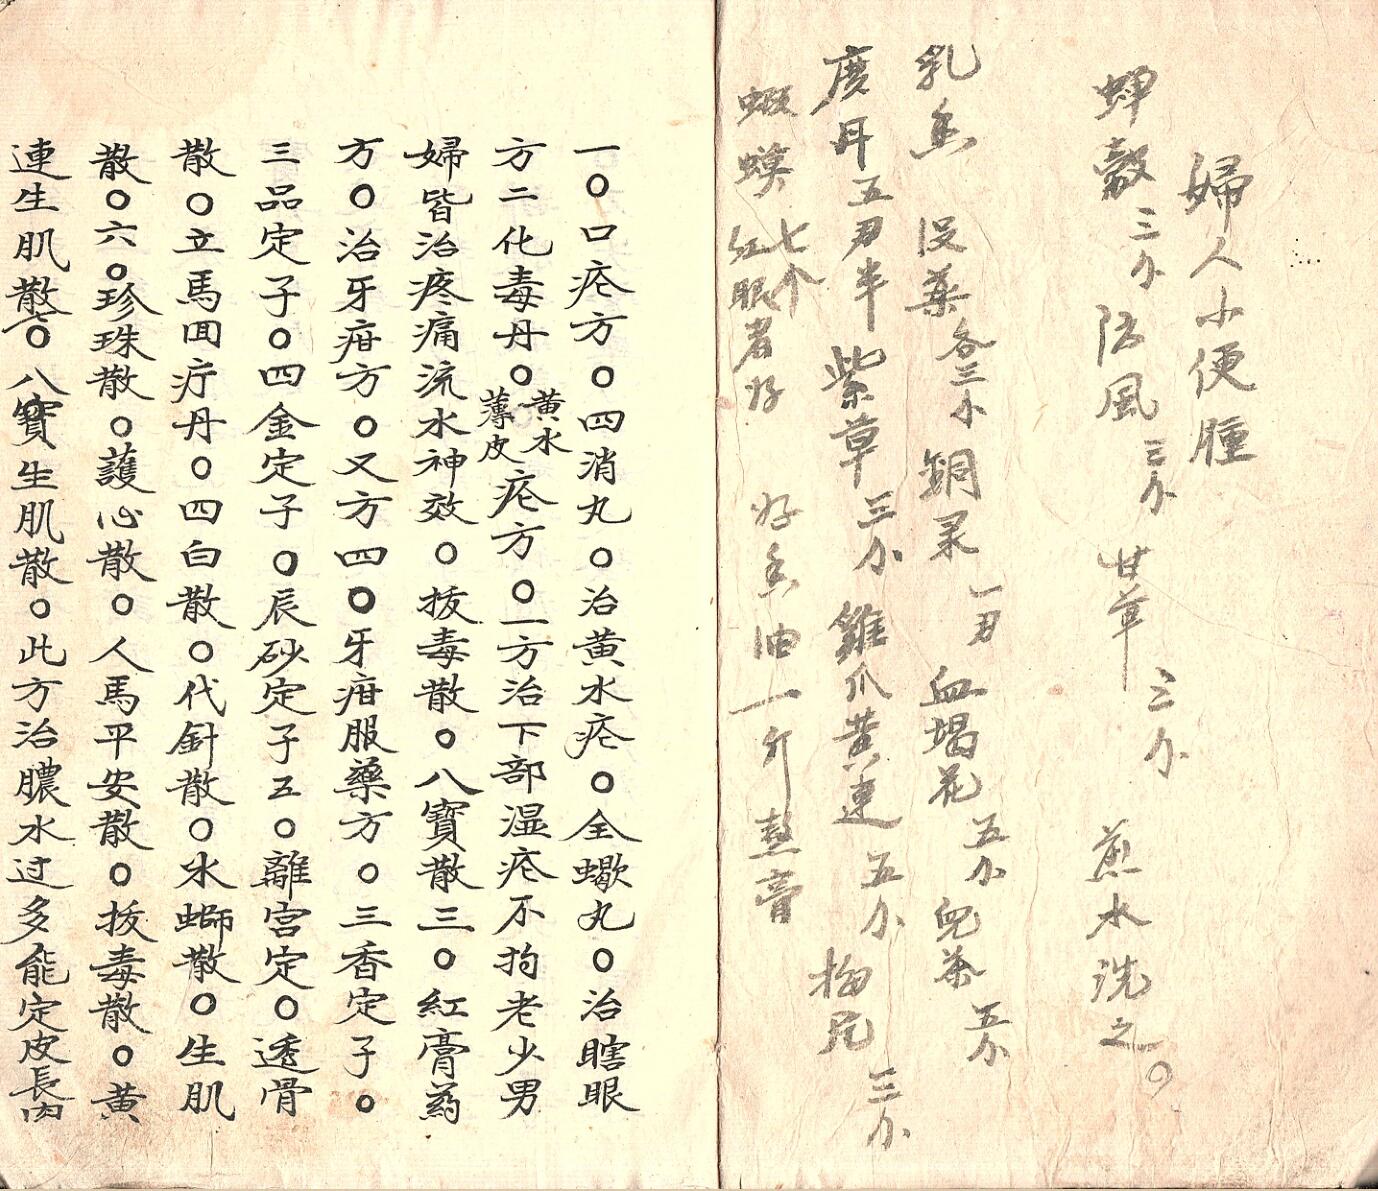 婦人小便腫
蟬殼三分防風三分甘草三分煎水洗之○
乳香没藥各三分銅彔一刃血竭花五分兒茶五分
廣丹五刃半紫草三分雞爪黄連五分梅片三分
蝦蟆七个紅眼者好好香油一斤熬膏
一○口疮方○四消丸○治黄水疮○全蠍丸○治瞎眼
方二化毒丹○黄水薄皮疮方○一方治下部湿疮不拘老少男
婦皆治疼痛流水神效○拔毒散○八寶散三○紅膏药
方○治牙疳方○又方四○牙疳服藥方○三香定子○
三品定子○四金定子○辰砂定子五○離宫定○透骨
散○立馬回疔丹○四白散○代針散○水螄散○生肌
散○六○珍珠散○護心散○人馬平安散○拔毒散○黄
連生肌散七○八寶生肌散○此方治膿水过多能定皮長肉